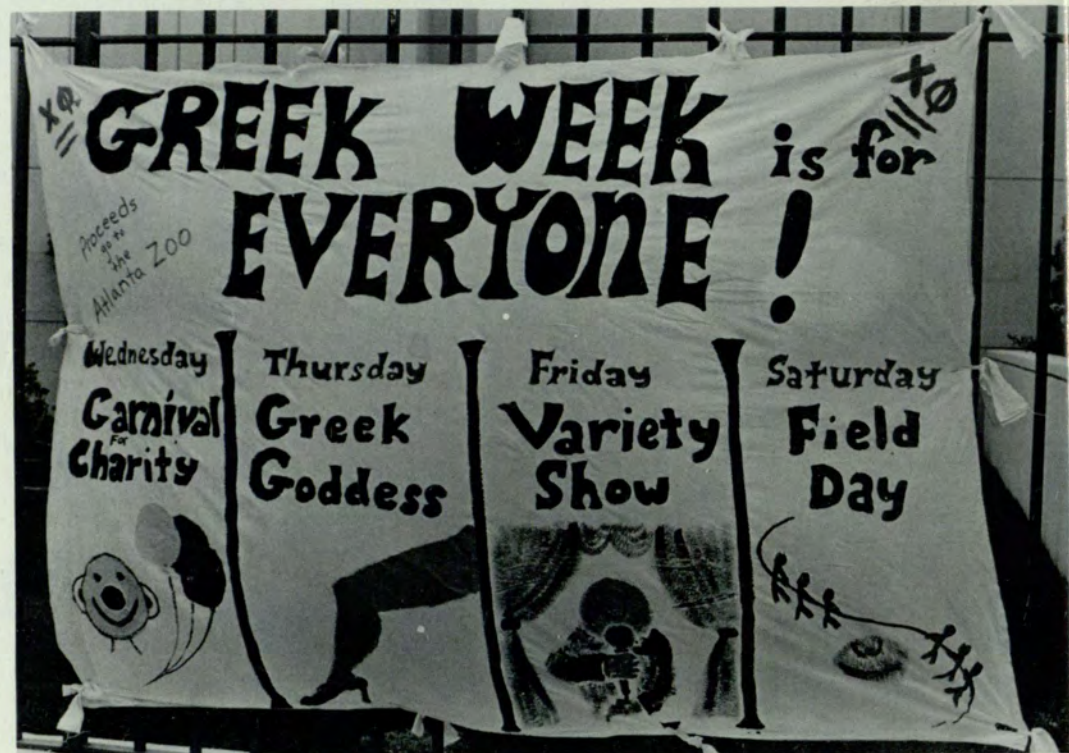 XΩ
XØ
GREEK WEEK is for
EVERYONE!
Proceeds
go to
the
Atlanta Zoo
Wednesday
Carnival
For
Charity
Thursday
Greek
Goddess
Friday
Variety
Show
Saturday
Field
Day